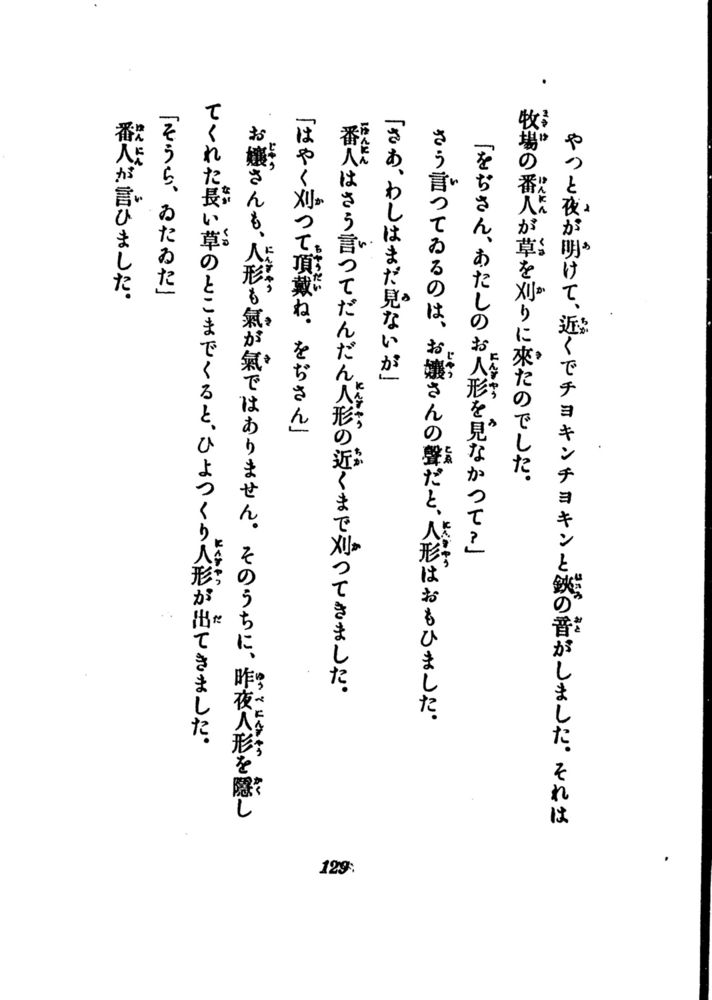 やつと夜が明けて、近くでチヨキンチヨキンと鋏の音がしました。それは
牧場の番人が草を刈りに來たのでした。
「をぢさん、あたしのお人形を見なかつて？」
さう言つてゐるのは、お孃さんの聲だと、人形はおもひました。
「さあ、わしはまだ見ないが」
番人はさう言つてだんだん人形の近くまで刈つてきました。
「はやく刈つて頂戴ね。をぢさん」
お孃さんも、人形も氣が氣ではありません。そのうちに、昨夜人形を隱し
てくれた長い草のとこまでくると、ひよつくり人形が出てきました。
「そうら、ゐたゐた」
番人が言ひました。
129